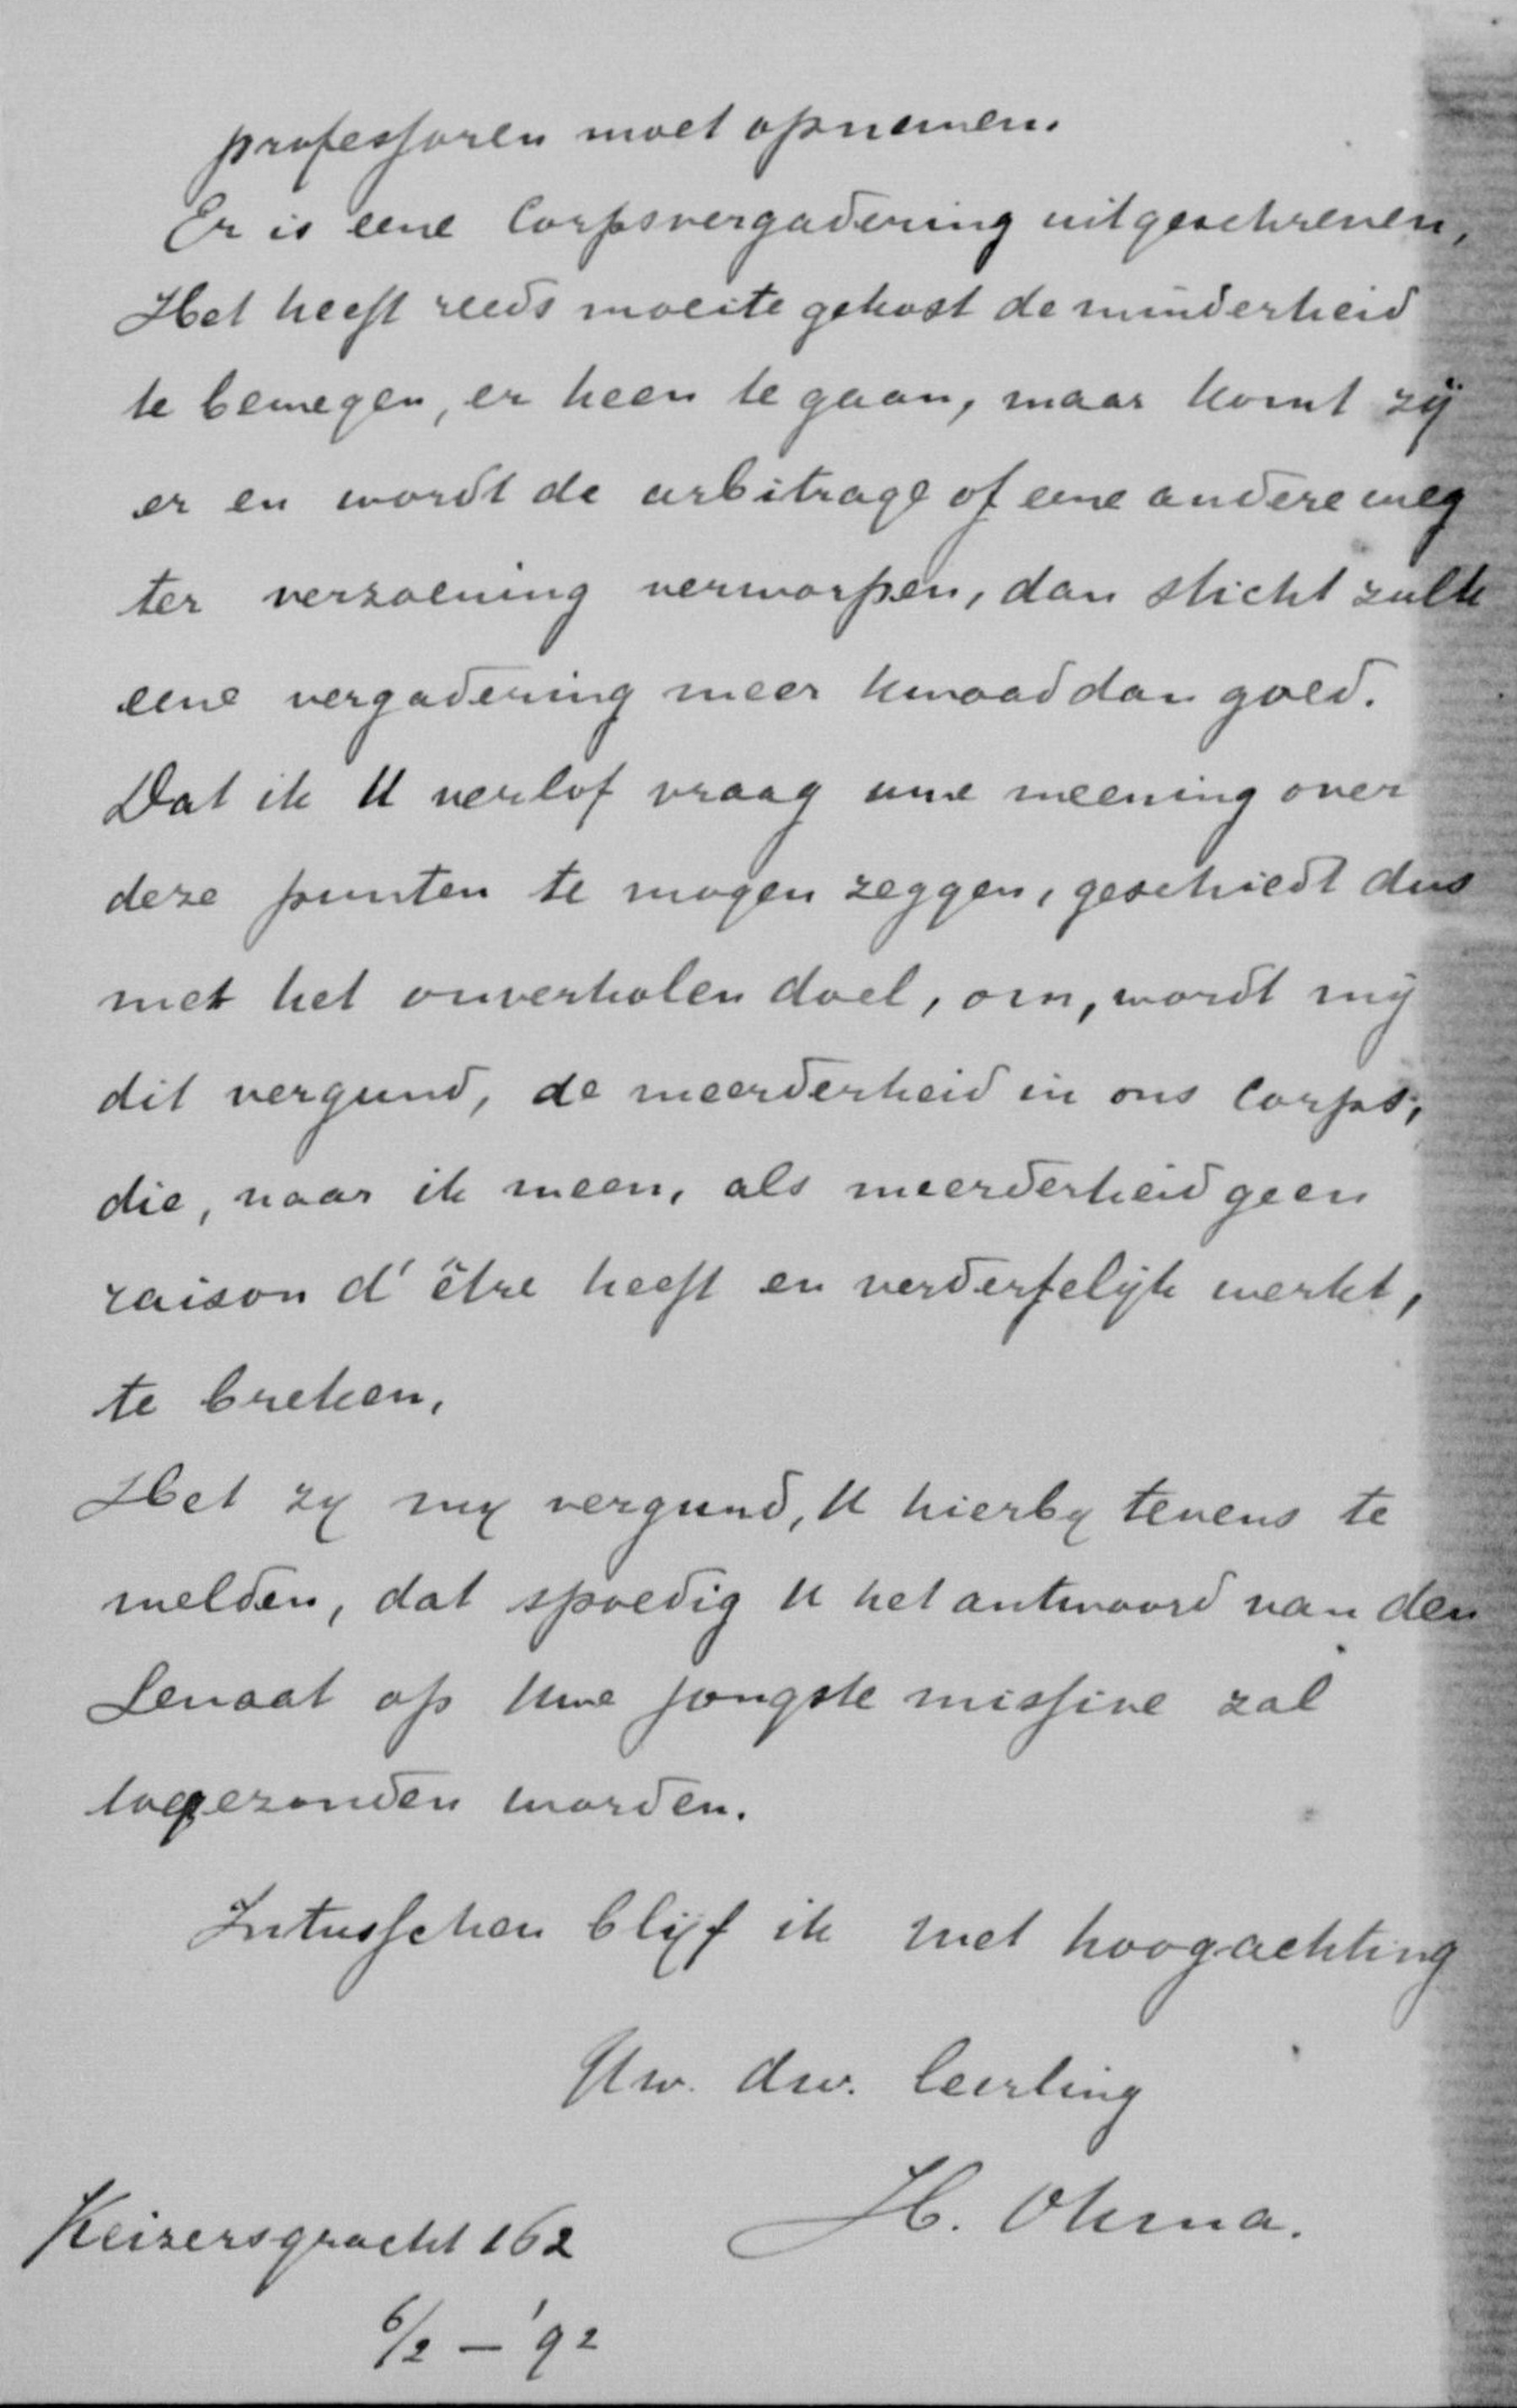 professoren moet opnemen.
Er is eene Corpsvergadering uitgeschreven,
Het heeft reeds moeite gekost de minderheid
te bewegen, er heen te gaan, maar komt zij
er en wordt de arbitrage of eene andere weg
ter verzoening verworpen, dan sticht zulk
eene vergadering meer kwaad dan goed.
Dat ik U verlof vraag eene meening over
deze punten te mogen zeggen, geschiedt dus
met het onverholen doel, om, wordt mij
dit vergund, de meerderheid in ons Corps,
die, naar ik meen, als meerderheid geen
raison d'être heeft en verderfelijk werkt,
te breken,
Het zy my vergund, U hierby tevens te
melden, dat spoedig U het antwoord van den
Senaat op Uwe jongste missive zal
toegezonden worden.
Intusschen blijf ik met hoogachting
Uw. dw. leerling
H. Okma.
Keizersgracht 162
6/2 - '92